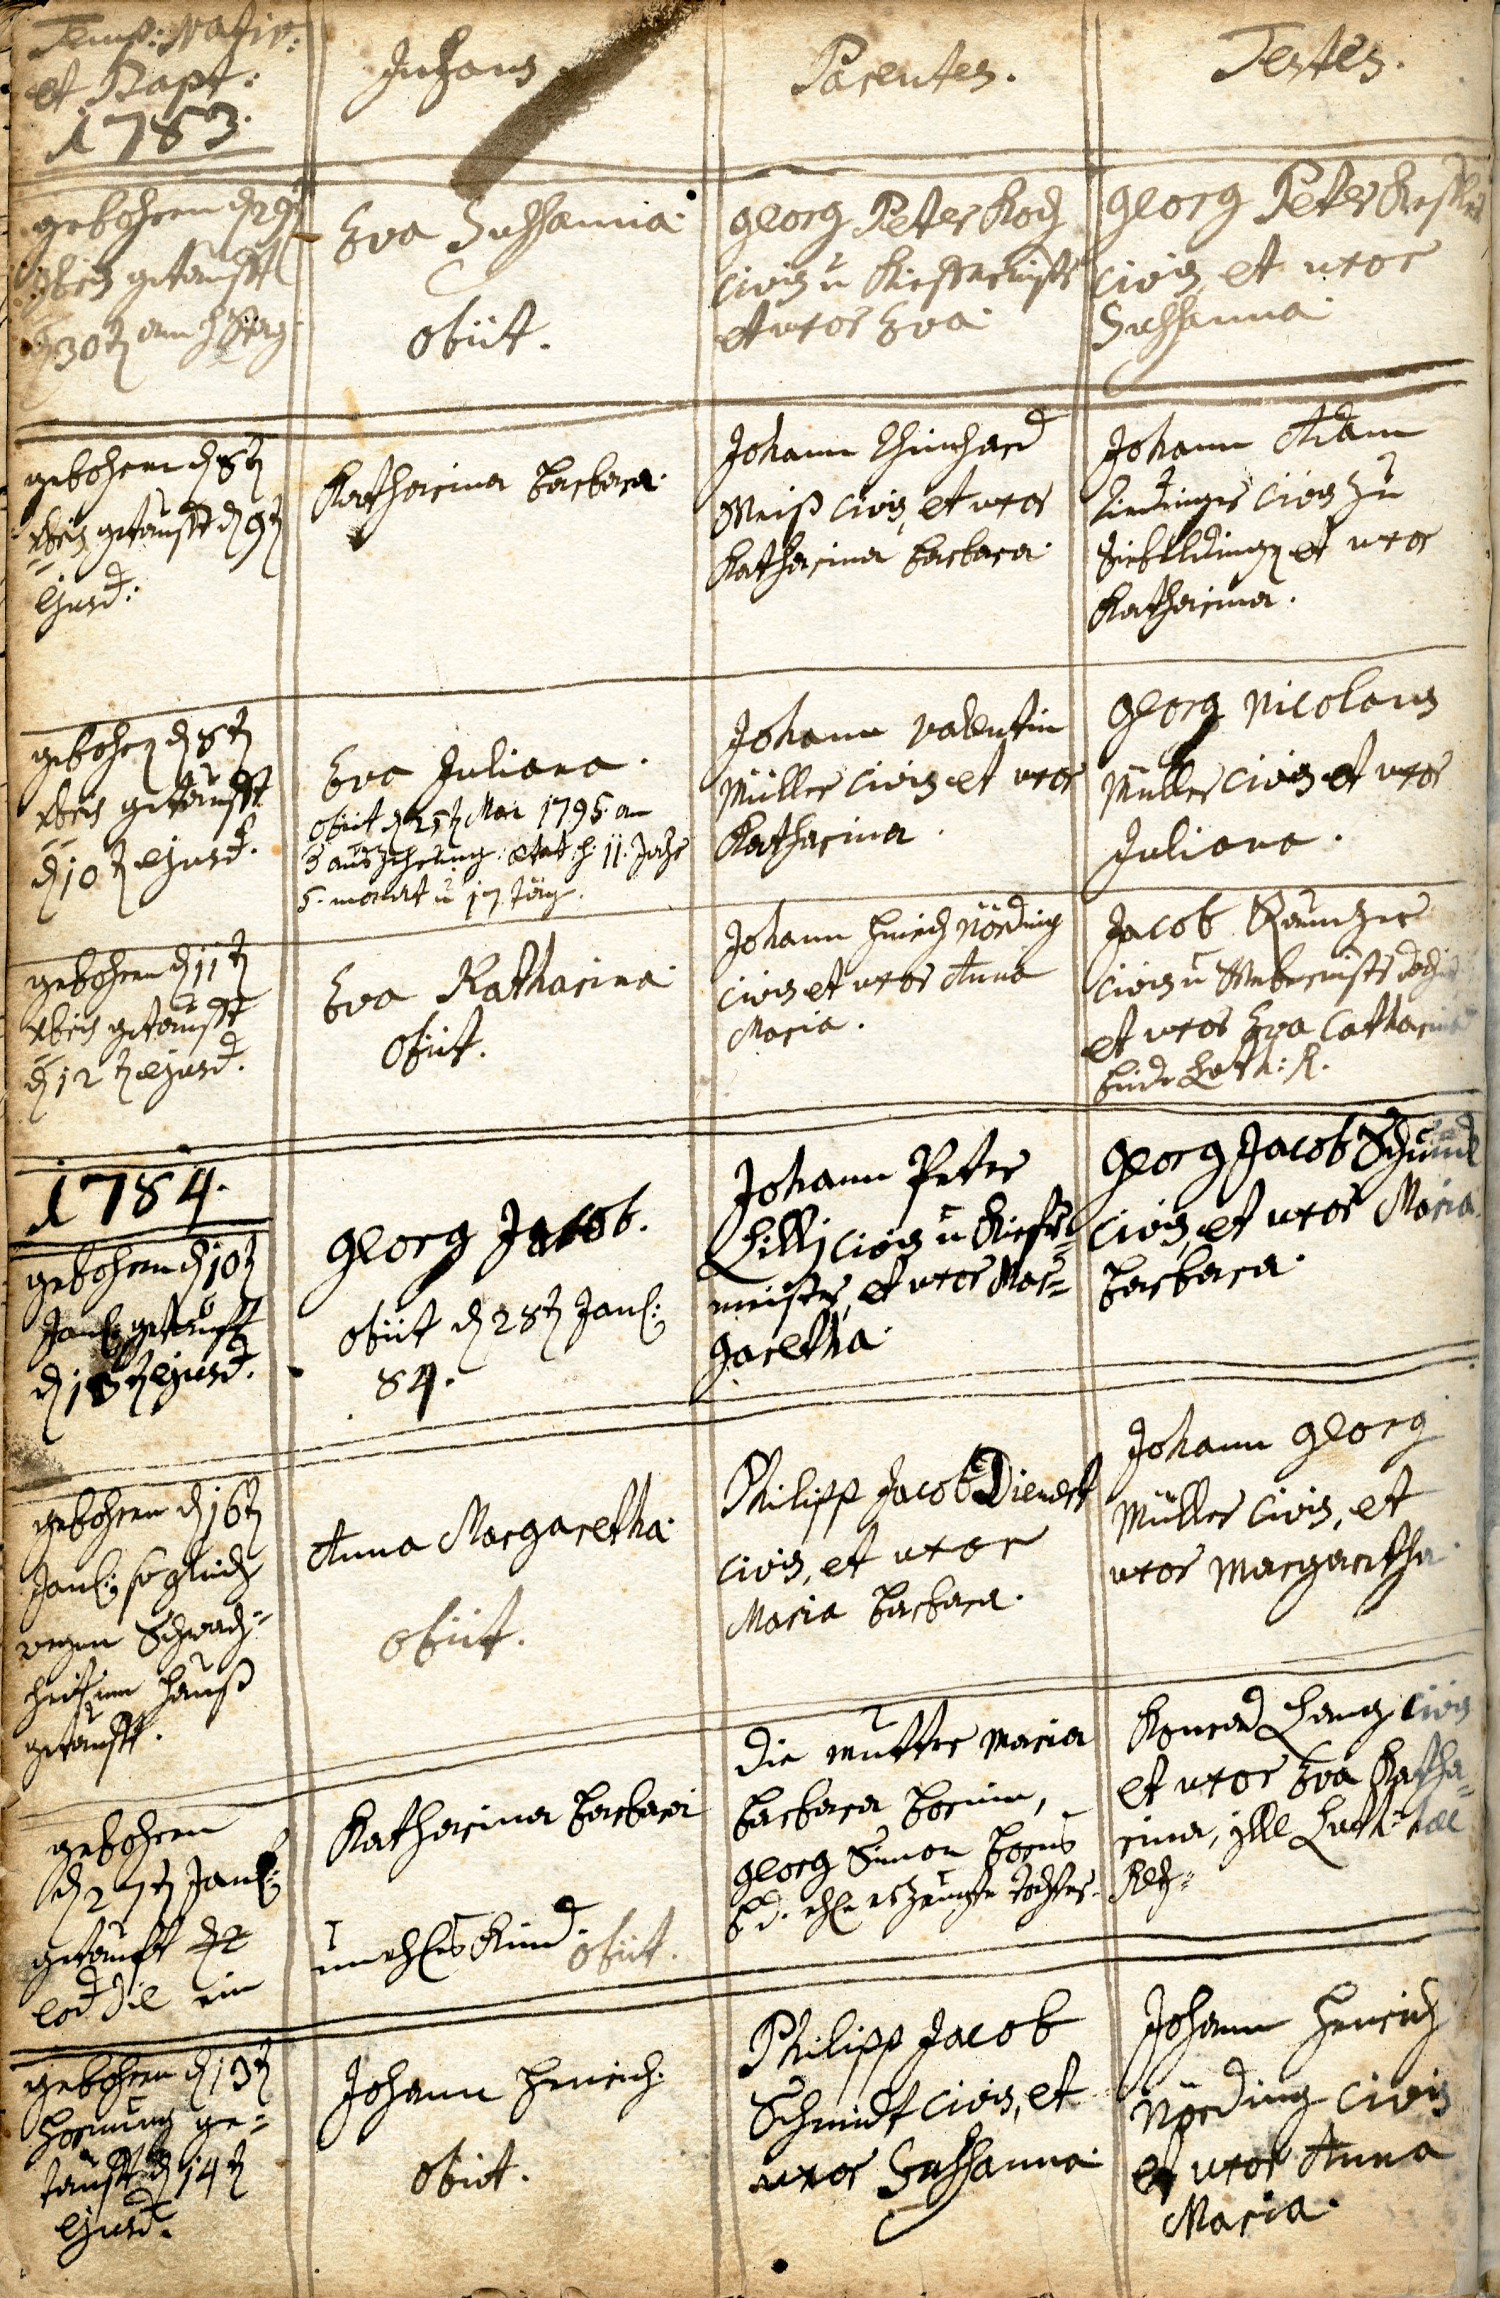 Temp: Nativ:
et Bapt:
1783.
Infans
Parentes.
Testes.
gebohren d 29t
9bris getaufft
d 30t
Eva Sussanna
obiit.
Georg Peter Koch
civis u
et uxor Eva
Georg Peter
civis et uxor
Sussanna
gebohren d 8t
xbris getaufft d 9t
ejusd:
Katharina Barbara
Johann Reinhard
Weiß civis, et uxor
Katharina Barbara
Johann Adam
civis zu
Siebeldingen et uxor
Katharina.
gebohren d 8t
xbris getaufft
d 10t ejusd.
Eva Juliana.
obiit d 25t Mai 1795 an
d auszehrung. etat. 11. Jahr
5. monat u 17 täg.
Johann Valentin
Müller civis et uxor
Katharina.
Georg Nicolaus
Müller civis et uxor
Juliana.
gebohren d 11t
xbris getaufft
d 12t ejusd.
Eva Katharina
obiit.
Johann Henrich Nörding
civis et uxor Anna
Maria.
Jacob
civis u
et uxor Eva Catharina
beide Luth: R.
1784.
gebohren d 10t
Jan: getaufft
d 18t ejusd.
Georg Jacob.
obiit d 28t Jan:
84.
Johann Peter
Lilli civis u Kiefer-
meister, et uxor Mar-
garetha
Georg Jacob Schunck
civis, et uxor Maria
Barbara
gebohren d 16t
Jan: so gleich
wegen Schwach-
heit im Hauß
getaufft.
Anna Margaretha
obiit.
Philipp Jacob Dienest
civis, et uxor
Maria Barbara.
Johann Georg
Müller civis, et
uxor Margaretha
gebohren
d 27t Jan:
getaufft
eod. die ein
Katharina Barbara
unehlis Kind. obiit.
Die mutter Maria
Barbara Bornin,
Georg Simon Borns
ehl. erzeugte tochter.
Konrad Lang civis
et uxor Eva Katha-
rina, ille Luth: hae
Ref:
gebohren d 13t
Hornung ge-
taufft d 14t
ejusd.
Johann Henrich
obiit.
Philipp Jacob
Schmidt civis, et
uxor Sussanna
Johann Henrich
Nörding civis
et uxor Anna
Maria.